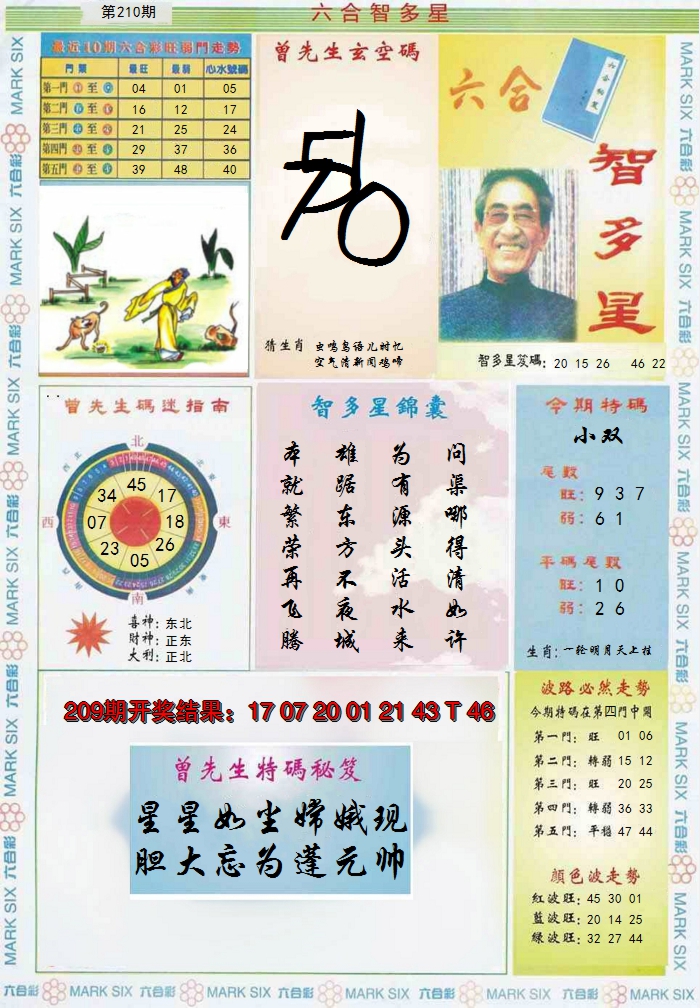 第210期
六合智多星
最近10期六合彩旺弱門走勢
門類 最旺 最弱 心水號碼
第一門 至 04 01 05
第二門 至 16 12 17
第三門 至 21 25 24
第四門 至 29 37 36
第五門 至 39 48 40
曾先生玄空碼
猜生肖 虫鸣鸟语儿时忆
空气清新闻鸡啼
六合
智多星
智多星笈碼: 20 15 26 46 22
曾先生碼迷指南
北
西北
東北
西
東
南
45
17
18
26
05
23
07
34
喜神: 东北
财神: 正东
大利: 正北
智多星錦囊
问渠哪得清如许
为有源头活水来
雄踞东方不夜城
本就繁荣再飞腾
今期特碼
小双
尾數
旺: 9 3 7
弱: 6 1
平碼尾數
旺: 1 0
弱: 2 6
生肖: 一轮明月天上挂
209期开奖结果: 17 07 20 01 21 43 T 46
曾先生特碼秘笈
星星如尘嫦娥现
胆大忘为蓬元帅
波路必然走勢
今期特碼在第四門中開
第一門: 旺 01 06
第二門: 轉弱 15 12
第三門: 旺 20 25
第四門: 轉弱 36 33
第五門: 平穩 47 44
顏色波走勢
紅波旺: 45 30 01
藍波旺: 20 14 25
綠波旺: 32 27 44
MARK SIX 六合彩